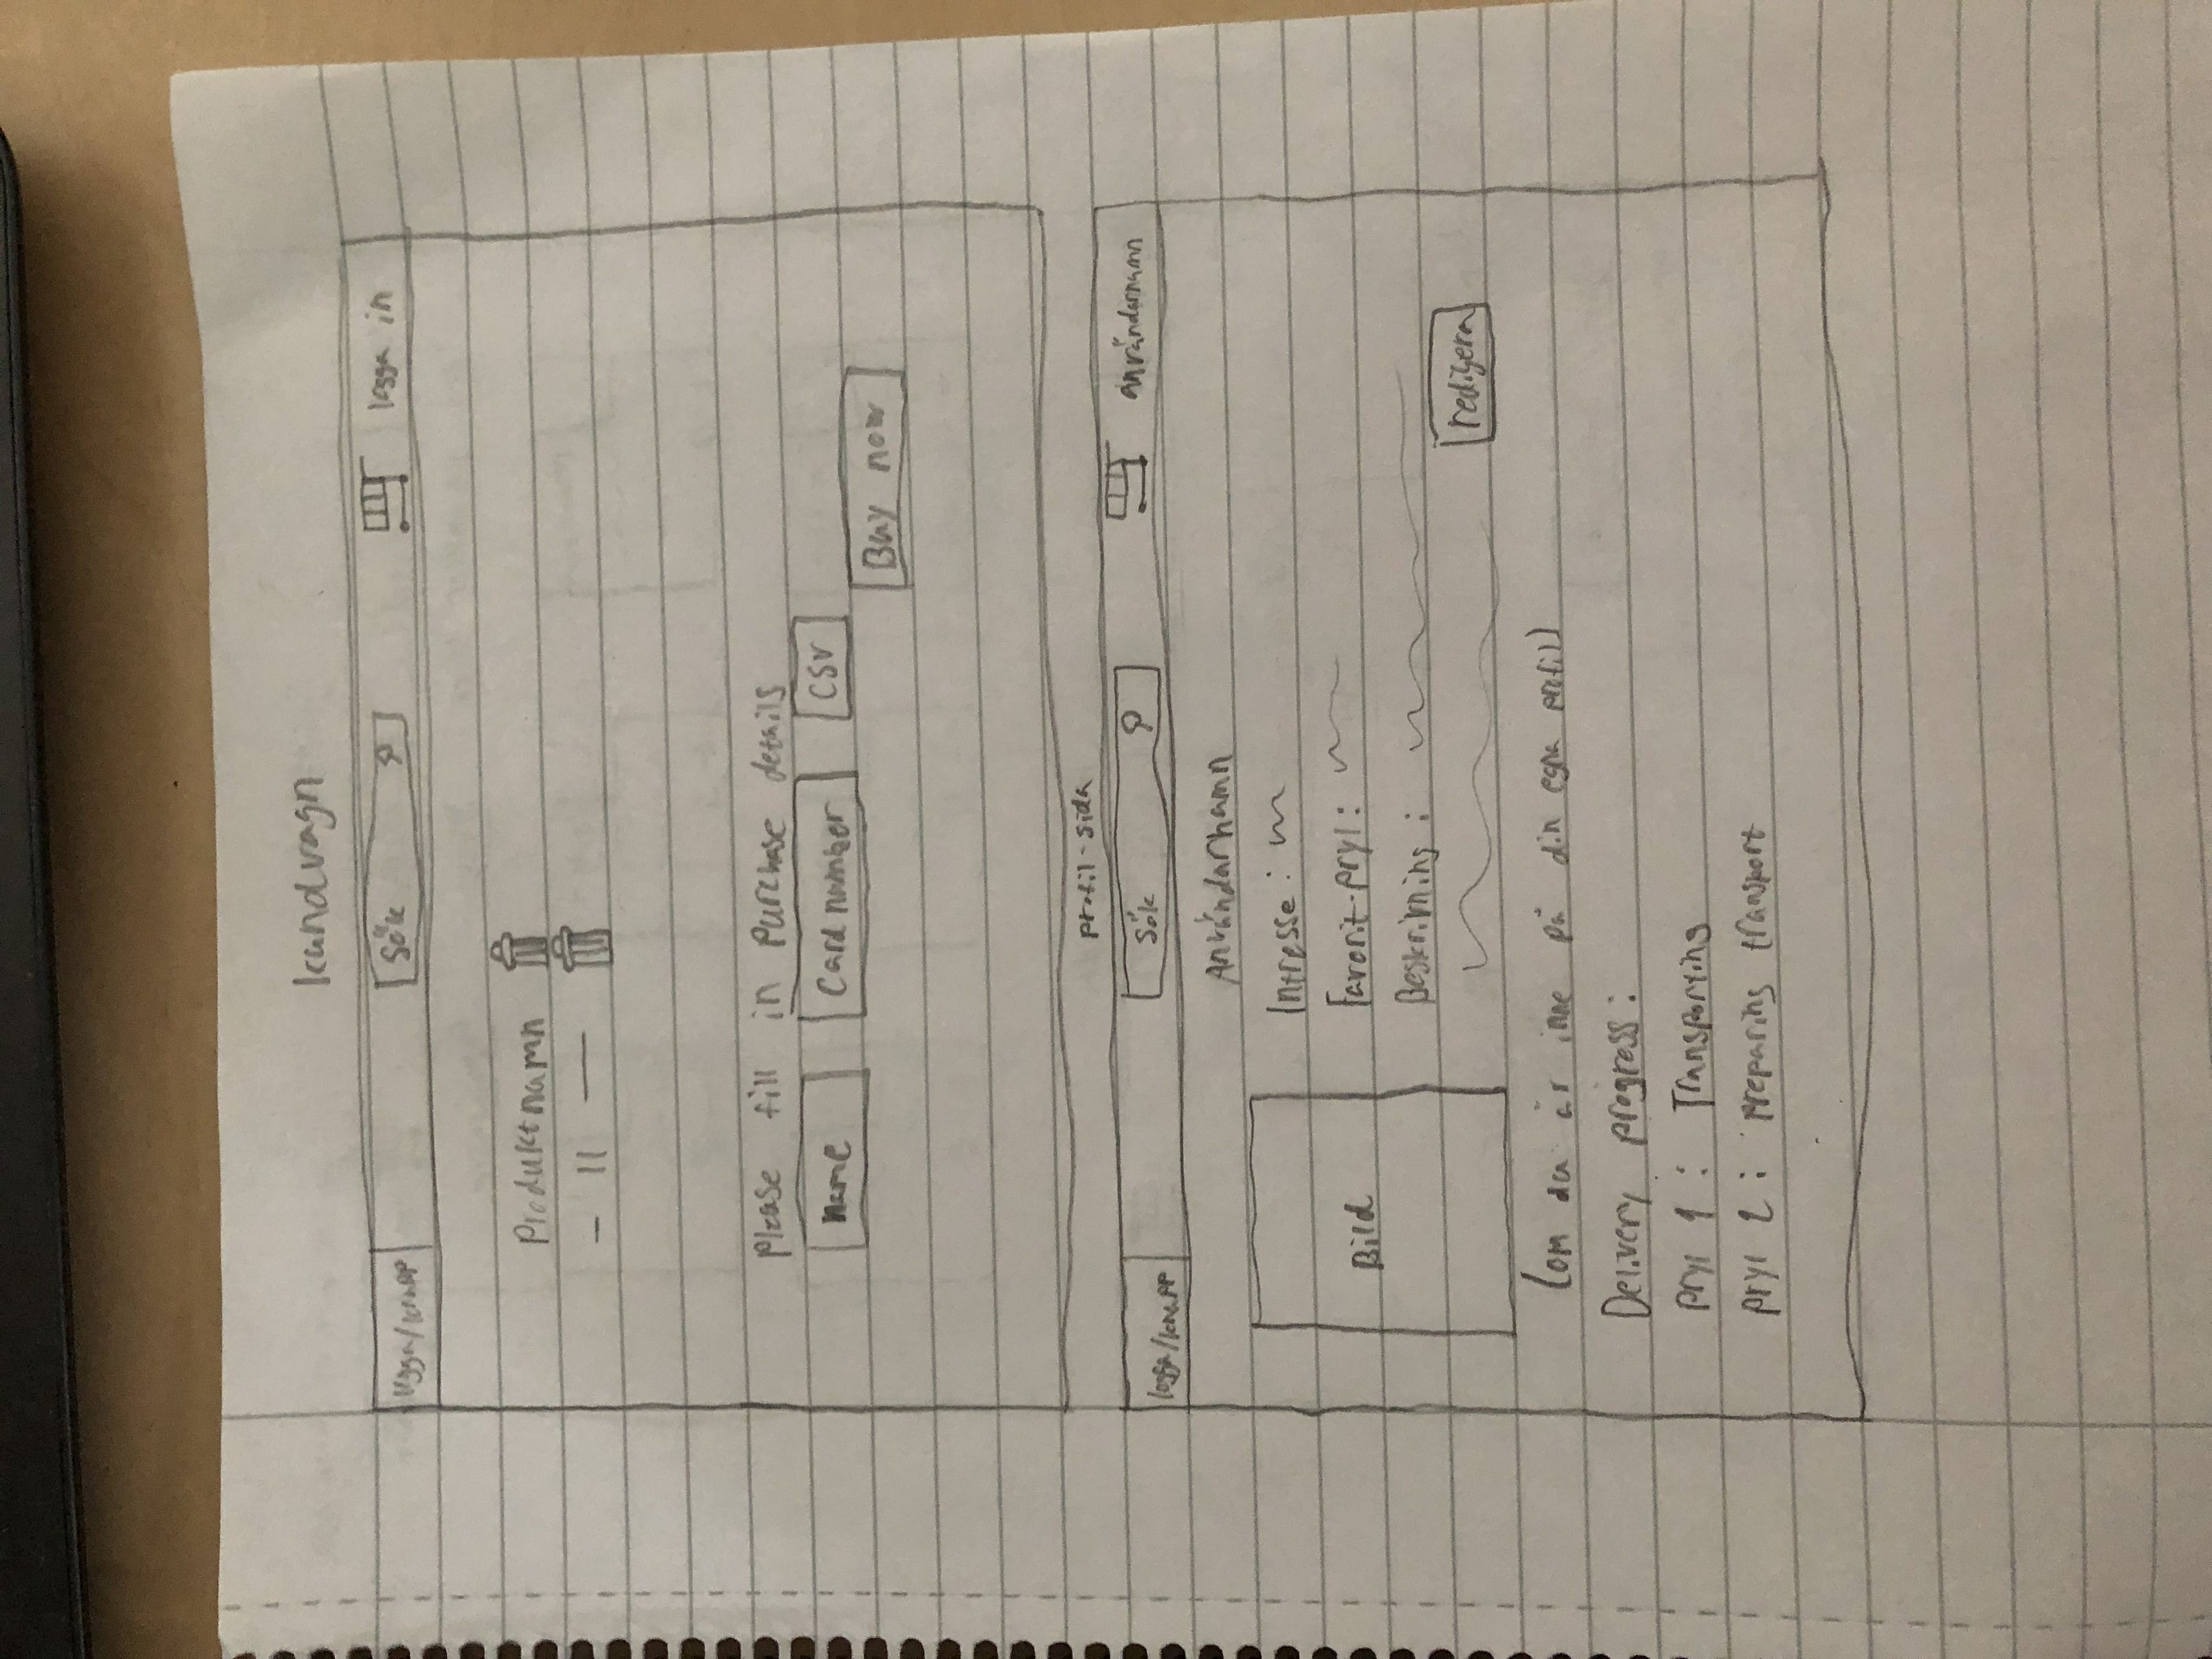 kundvagn
logga/knapp Sök logga in
Produktnamn
— 11 —
Please fill in purchase details
name Card number CSV
Buy now
profil-sida
logga/knapp Sök användarnamn
Användarnamn
Intresse:
Favorit-pryl:
Bild
Beskrivning:
redigera
(om du är inne på din egna profil)
Delivery progress:
Pryl 1: Transporting
pryl 2: preparing transport